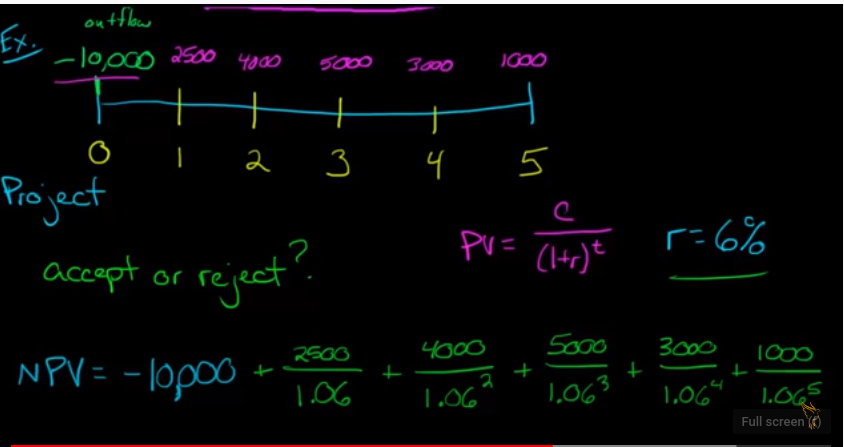 outflow
Ex. -10,000 2500 4000 5000 3000 1000
0 1 2 3 4 5
Project
PV = C / (1+r)^t r = 6%
accept or reject?
NPV = -10,000 + 2500/1.06 + 4000/1.06^2 + 5000/1.06^3 + 3000/1.06^4 + 1000/1.06^5
Full screen (f)